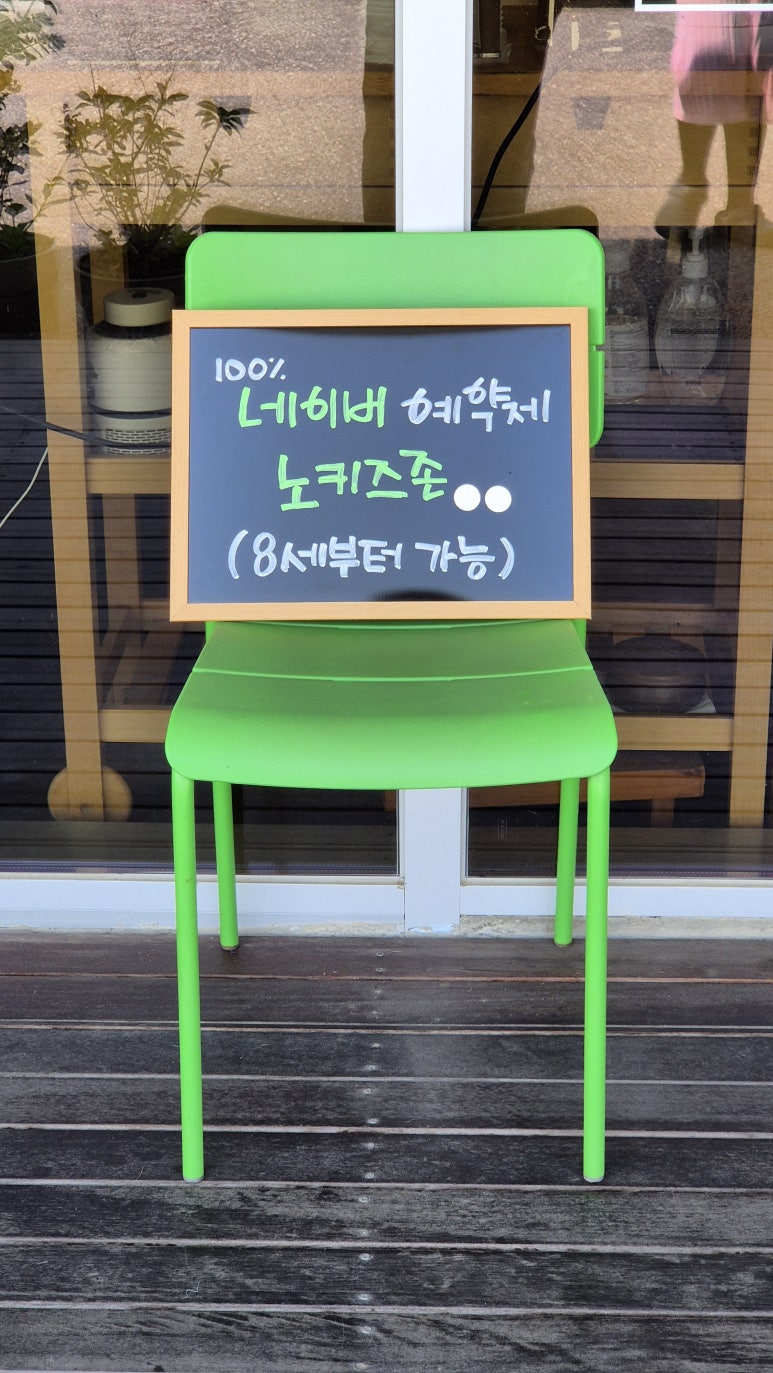 100%
네이버 예약제
노키즈존
(8세부터 가능)